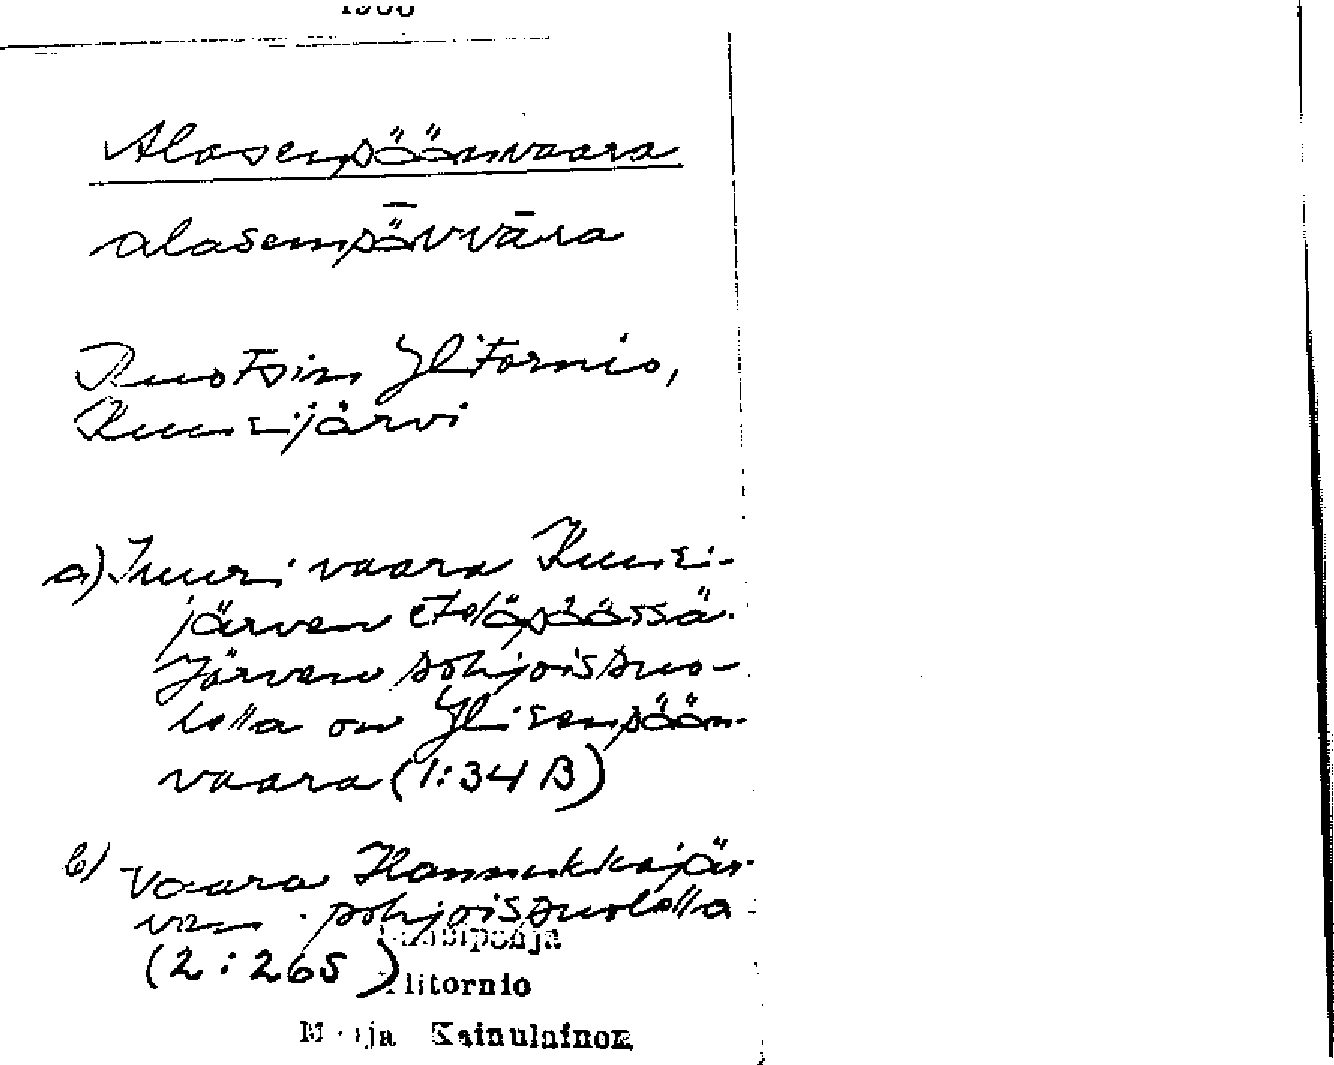 Alasenpäänvaara
alasempǟvvāra
Ruotsin Ylitornio,
Kuusijärvi
a) Suuri vaara Kuusi-
järven eteläpäässä.
Järven pohjoispuo-
lella on Ylisenpään-
vaara (1:34 B)
b) Vaara Hannukkajär-
ven pohjoispuolella
(2:265)
litornio
Kainulainen